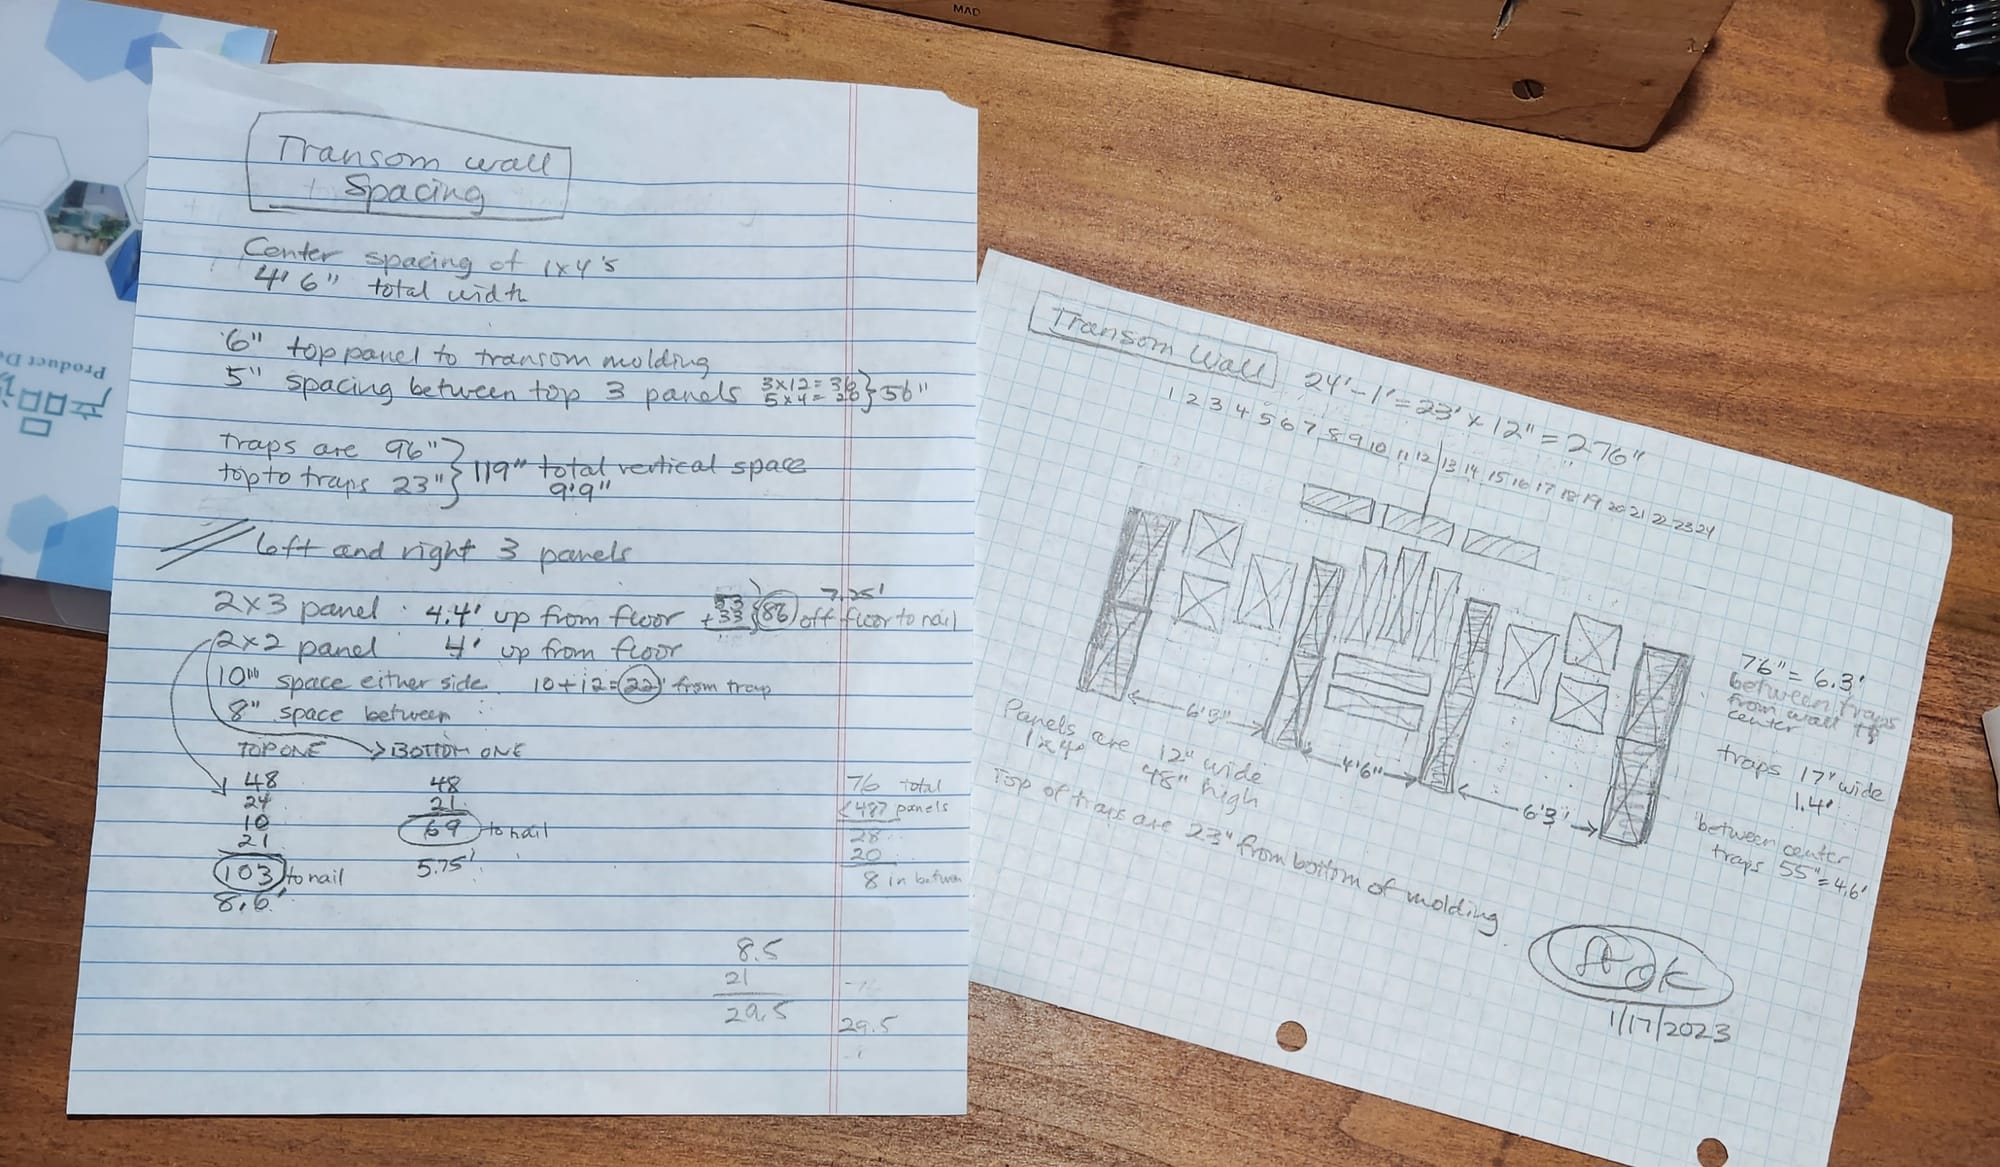 MAD
Product De
Transom wall
Spacing
Center spacing of 1x4's
4'6" total width
6" top panel to transom molding
5" spacing between top 3 panels 3x12=36 } 56"
5x4=20
traps are 96" } 119" total vertical space
top to traps 23" } 9'9"
left and right 3 panels
7.25'
2x3 panel 4.4' up from floor +33 } off floor to nail
2x2 panel 4' up from floor
10" space either side 10+12=22" from trap
8" space between
TOP ONE BOTTOM ONE
48 48
24 21
10 69 to nail
21 5.75'
103 to nail
8.6'
76 total
panels
28
20
8 in between
8.5
21
29.5
29.5
Transom Wall
24'-1'=23'x12"=276"
1 2 3 4 5 6 7 8 9 10 11 12 13 14 15 16 17 18 19 20 21 22 23 24
6'3"
4'6"
6'3"
Panels are 12" wide
1x4 48" high
Top of traps are 23" from bottom of molding
76"=6.3'
between traps
from wall to
center
traps 17" wide
1.4'
between center
traps 55"=4.6'
ok
1/17/2023